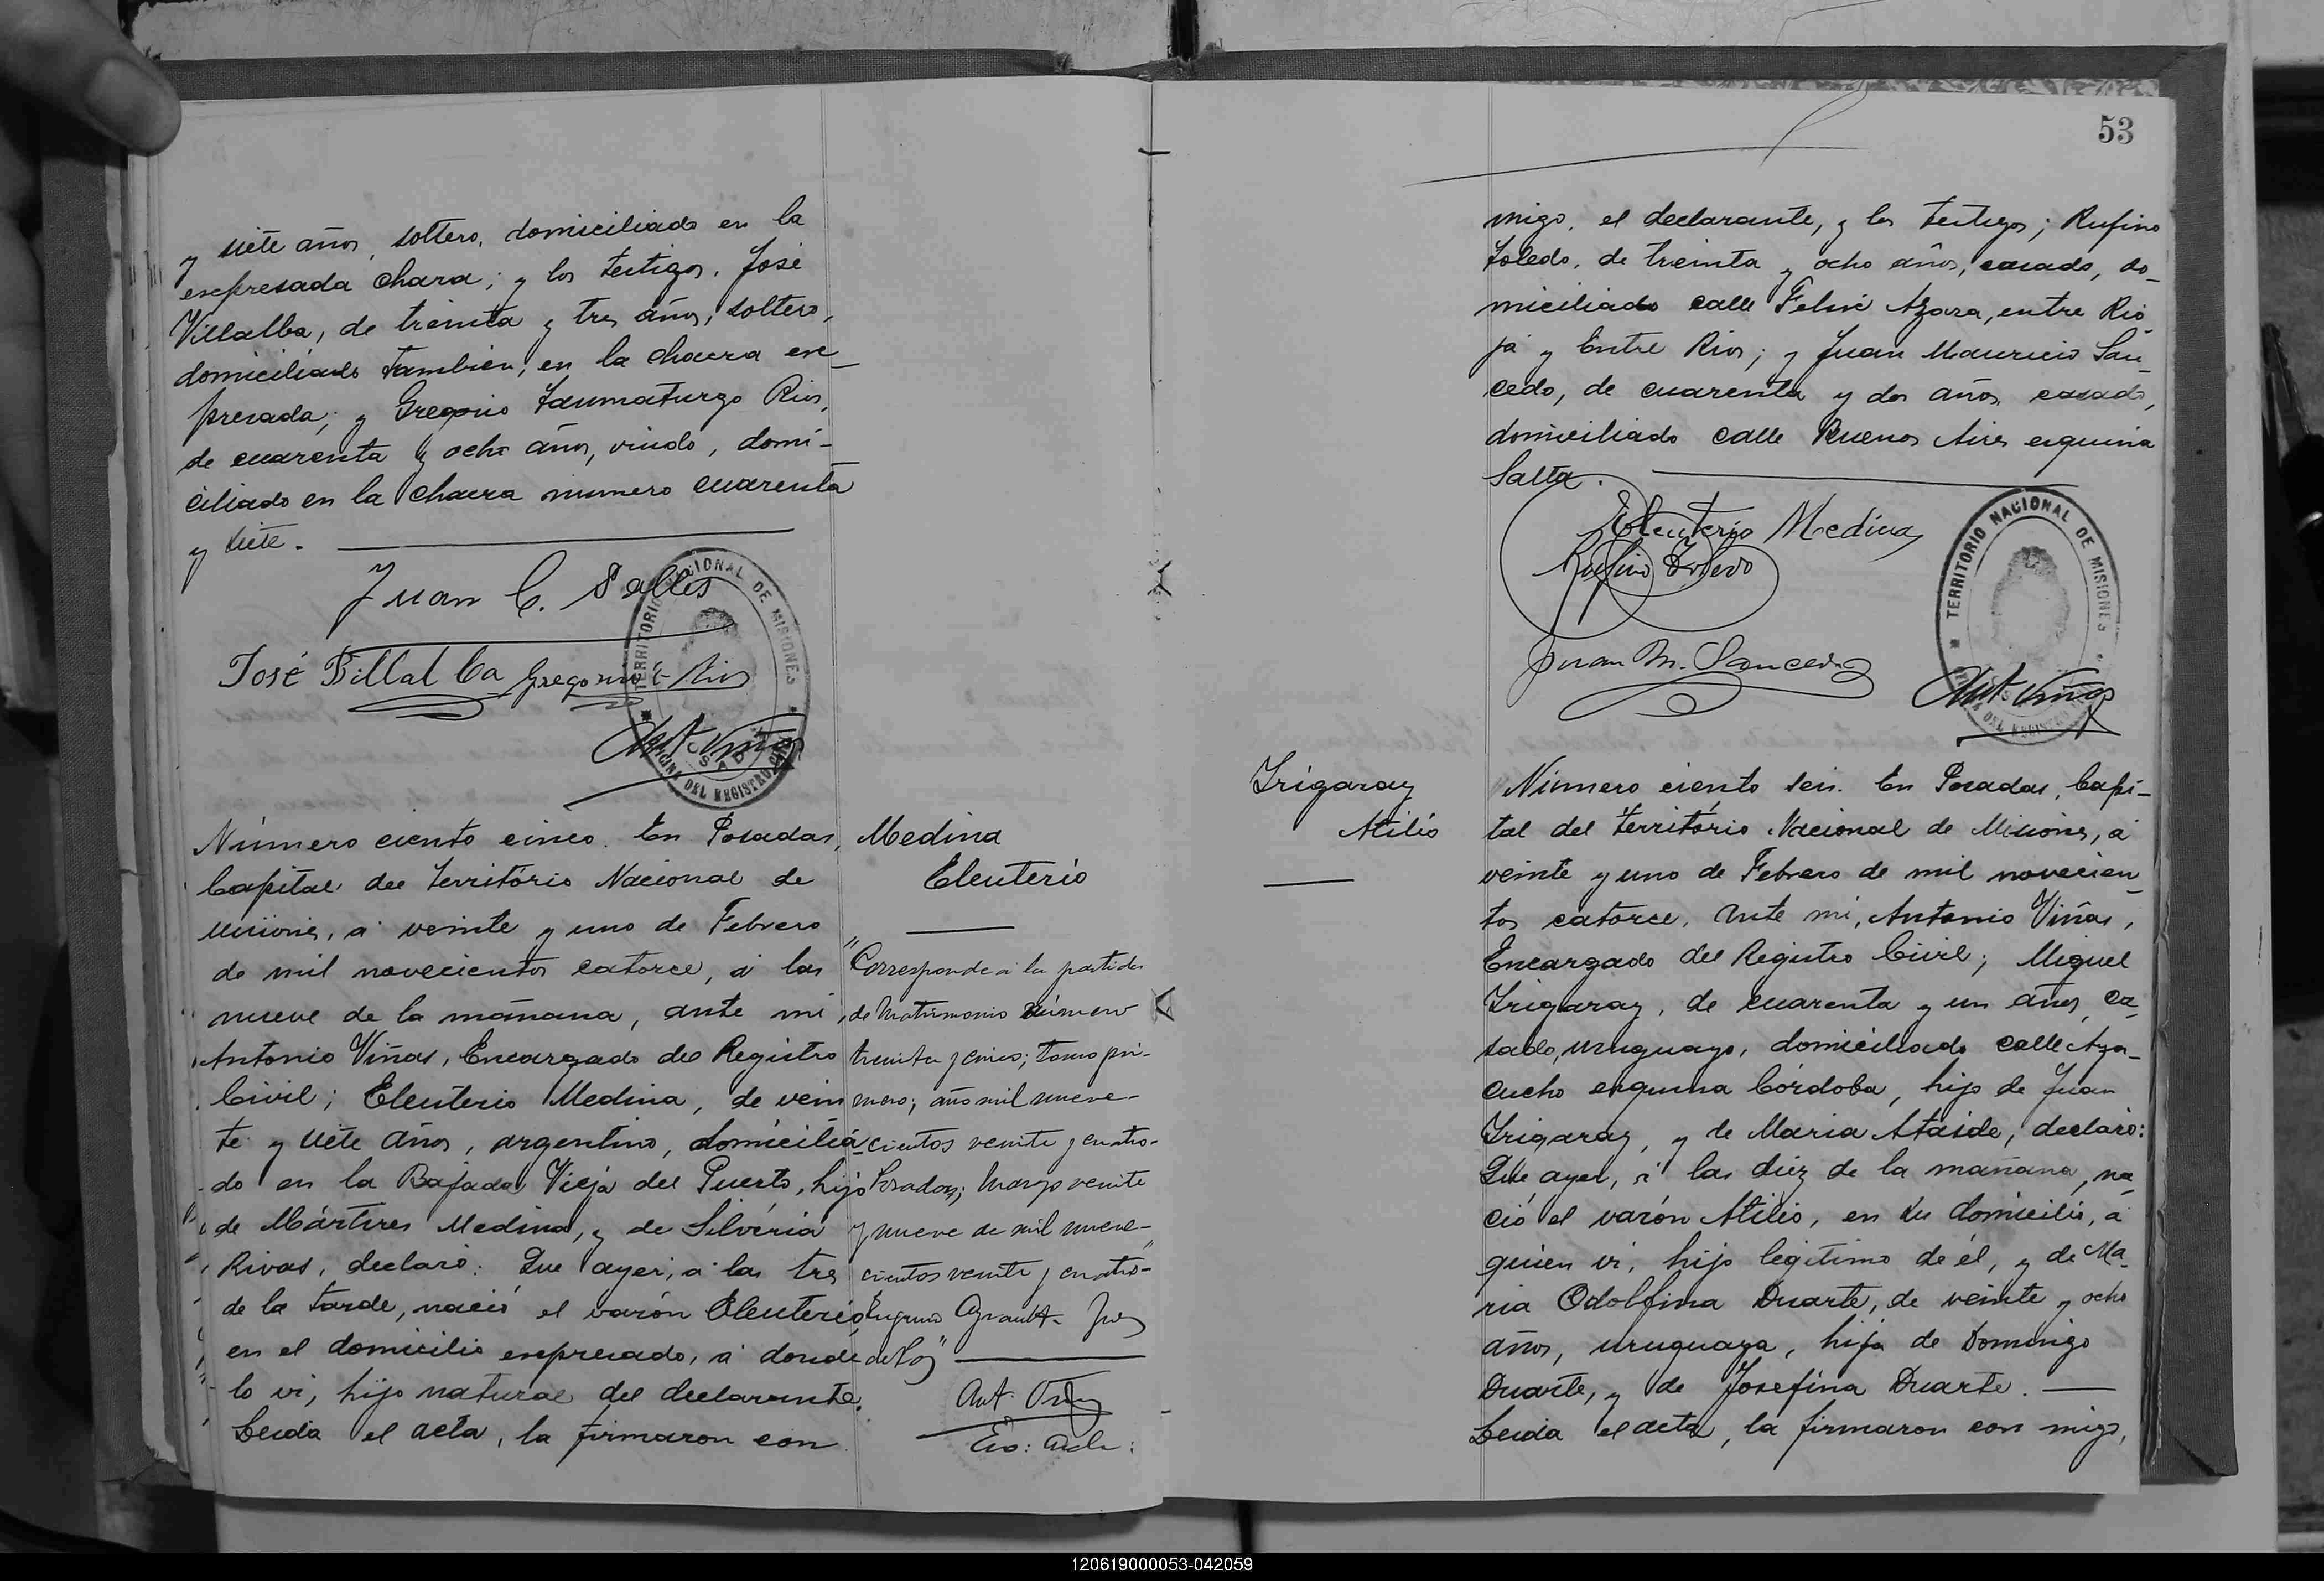 y siete años, soltero, domiciliado en la
expresada chara; y los testigos, José
Villalba, de treinta y tres años, soltero,
domiciliado tambien, en la chacra ex-
presada; y Gregorio Taumaturgo Rios,
de cuarenta y ocho años, viudo, domi-
ciliado en la chacra número cuarenta
y siete.
Juan C. Salles
José Billalba Gregorio T. Rios
Ant Viñas
TERRITORIO NACIONAL DE MISIONES
OFICINA DEL REGISTRO CIVIL
Número ciento cinco. En Posadas,
Capital del Território Nacional de
Misiones, á veinte y uno de Febrero
de mil novecientos catorce, á las
nueve de la mañana, ante mi,
Antonio Viñas, Encargado del Registro
Civil; Eleuterio Medina, de vein
te y siete años, argentino, domicilia-
do en la Bajada Vieja del Puerto, hijo
de Mártires Medina, y de Silvéria
Rivas, declaró: Que ayer, á las tres
de la tarde, nació el varón Eleuterio,
en el domicilio expresado, á donde
lo vi, hijo natural del declarante.
Leida el acta, la firmaron con
Medina
Eleuterio
"Corresponde á la partida
de Matrimonio número
treinta y cinco; tomo pri-
mero; año mil nueve-
cientos veinte y cuatro-
Posadas; Marzo veinte
y nueve de mil nueve-
cientos veinte y cuatro-
de Paz"
Ant. Viñas
53
migo, el declarante, y los testigos; Rufino
Toledo, de treinta y ocho años, casado, do-
miciliado calle Felix Azara, entre Rio
ja y Entre Rios; y Juan Mauricio Sau-
cedo, de cuarenta y dos años, casado,
domiciliado calle Buenos Aires esquina
Salta.
Eleuterio Medina
Rufino Toledo
Juan M. Saucedo
Ant Viñas
TERRITORIO NACIONAL DE MISIONES
DEL REGISTRO
Irigaray
Atilio
Número ciento seis. En Posadas, Capi-
tal del Território Nacional de Misiones, á
veinte y uno de Febrero de mil novecien-
tos catorce, ante mi, Antonio Viñas,
Encargado del Registro Civil; Miguel
Irigaray, de cuarenta y un años, ca-
sado, uruguayo, domiciliado calle Aya-
cucho esquina Córdoba, hijo de Juan
Irigaray, y de Maria Ataide, declaró:
Que ayer, á las diez de la mañana, na-
ció el varón Atilio, en su domicilio, á
quien vi, hijo legitimo de él, y de Ma-
ria Odolfina Duarte, de veinte y ocho
años, uruguaya, hija de Domingo
Duarte, y de Josefina Duarte.
Leida el acta, la firmaron con migo,
120619000053-042059